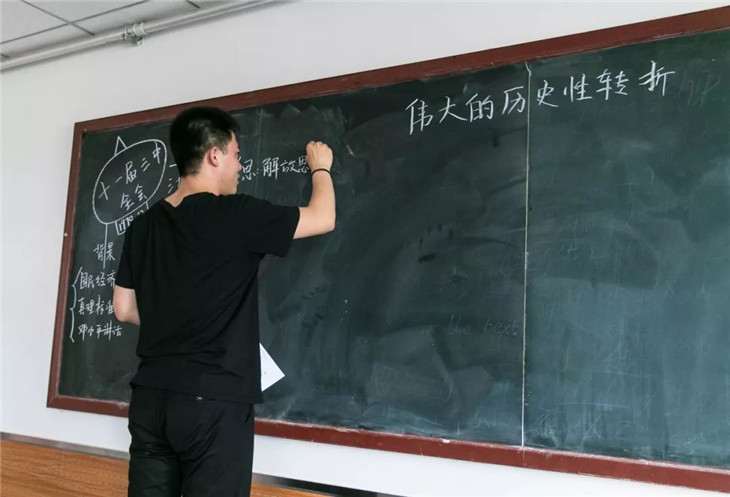 伟大的历史性转折
十一届三中
全会
思:解放思
背景
国民经济
真理标准
邓小平讲话
the text